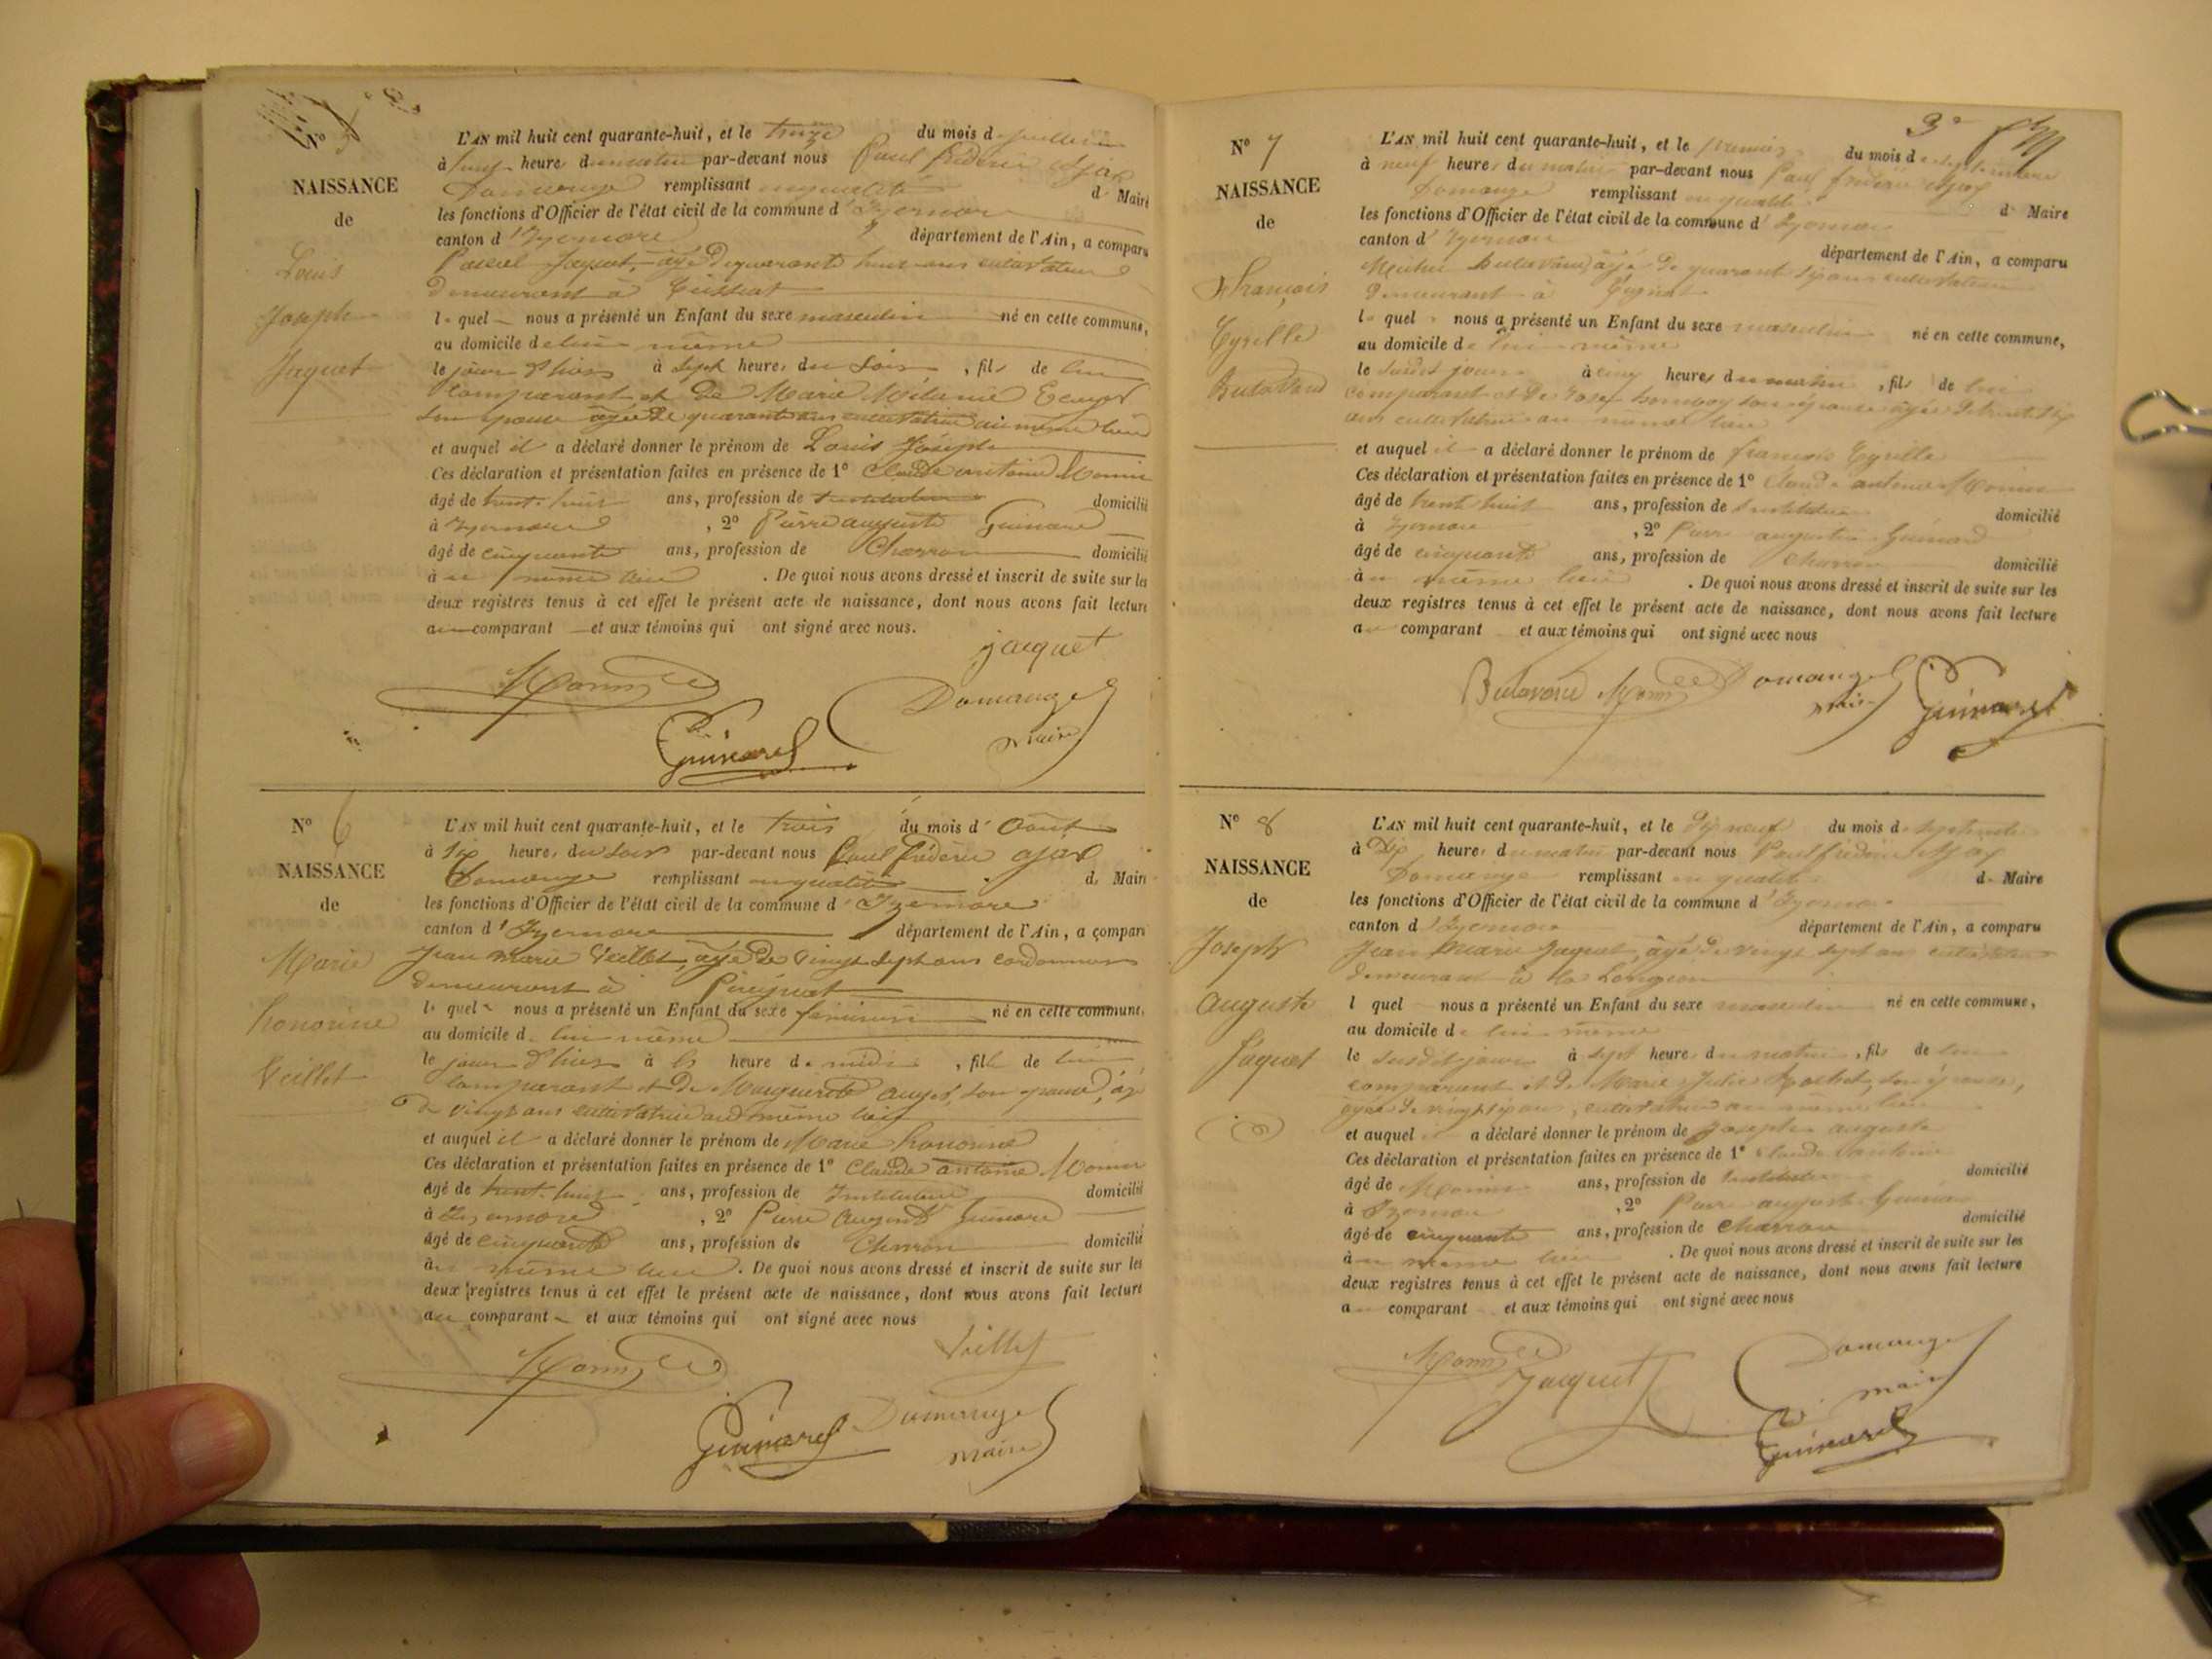 N° 5
NAISSANCE
de
Louis
Joseph
Jaquet
L'AN mil huit cent quarante-huit, et le treize du mois d juillet
à heure du matin par-devant nous Paul frédéric Ajax
Domange remplissant en qualité d Maire
les fonctions d'Officier de l'état civil de la commune d'Izernore
canton d'Izernore département de l'Ain, a comparu
Pascal Jaquet, âgé de quarante huit ans cultivateur
demeurant à
l quel nous a présenté un Enfant du sexe masculin né en cette commune,
au domicile de lui même
le jour d'hier à sept heures du soir, fils de lui
Comparant et de Marie Mélanie
son épouse âgée de quarante ans cultivatrice au même lieu
et auquel il a déclaré donner le prénom de Louis Joseph
Ces déclaration et présentation faites en présence de 1° Claude antoine Monin
âgé de trente huit ans, profession de instituteur domicilié
à Izernore, 2° Pierre auguste Guinard
âgé de cinquante ans, profession de Charron domicilié
au même lieu. De quoi nous avons dressé et inscrit de suite sur les
deux registres tenus à cet effet le présent acte de naissance, dont nous avons fait lecture
au comparant et aux témoins qui ont signé avec nous.
jacquet
Monin
Domange
maire
Guinard
N° 6
NAISSANCE
de
Marie
honorine
Veillet
L'AN mil huit cent quarante-huit, et le trois du mois d'Août
à six heures du soir par-devant nous Paul frédéric ajax
Domange remplissant en qualité d Maire
les fonctions d'Officier de l'état civil de la commune d'Izernore
canton d'Izernore département de l'Ain, a comparu
Jean marie Veillet, âgé de vingt sept ans cordonnier
demeurant à
l quel nous a présenté un Enfant du sexe féminin né en cette commune,
au domicile de lui même
le jour d'hier à heure de midi, fille de lui
Comparant et de Marguerite son épouse, âgée
de vingt ans cultivatrice au même lieu
et auquel il a déclaré donner le prénom de Marie honorine
Ces déclaration et présentation faites en présence de 1° Claude antoine Monin
âgé de trente huit ans, profession de Instituteur domicilié
à Izernore, 2° Pierre auguste Guinard
âgé de cinquante ans, profession de Charron domicilié
au même lieu. De quoi nous avons dressé et inscrit de suite sur les
deux registres tenus à cet effet le présent acte de naissance, dont nous avons fait lecture
au comparant et aux témoins qui ont signé avec nous
Veillet
Monin
Guinard
Domange
maire
3e
N° 7
NAISSANCE
de
François
Cyrille
Butavand
L'AN mil huit cent quarante-huit, et le premier du mois de septembre
à neuf heures du matin par-devant nous Paul frédéric Ajax
Domange remplissant en qualité d Maire
les fonctions d'Officier de l'état civil de la commune d'Izernore
canton d'Izernore département de l'Ain, a comparu
Butavand, âgé de quarante six ans cultivateur
demeurant à
l quel nous a présenté un Enfant du sexe masculin né en cette commune,
au domicile de lui même
le susdit jour à cinq heures du matin, fils de lui
comparant et de son épouse âgée de trente six
ans cultivatrice au même lieu
et auquel il a déclaré donner le prénom de françois Cyrille
Ces déclaration et présentation faites en présence de 1° Claude antoine Monin
âgé de trente huit ans, profession de Instituteur domicilié
à Izernore, 2° Pierre auguste Guinard
âgé de cinquante ans, profession de Charron domicilié
au même lieu. De quoi nous avons dressé et inscrit de suite sur les
deux registres tenus à cet effet le présent acte de naissance, dont nous avons fait lecture
au comparant et aux témoins qui ont signé avec nous
Butavand Monin Domange
maire Guinard
N° 8
NAISSANCE
de
Joseph
Auguste
Jaquet
L'AN mil huit cent quarante-huit, et le dix neuf du mois de septembre
à Dix heures du matin par-devant nous Paul frédéric Ajax
Domange remplissant en qualité de Maire
les fonctions d'Officier de l'état civil de la commune d'Izernore
canton d'Izernore département de l'Ain, a comparu
Jean Marie Jaquet, âgé de vingt sept ans cultivateur
demeurant à
l quel nous a présenté un Enfant du sexe masculin né en cette commune,
au domicile de lui même
le susdit jour à sept heures du matin, fils de lui
comparant et de Marie Julie son épouse,
âgée de vingt six ans, cultivatrice au même lieu
et auquel il a déclaré donner le prénom de Joseph auguste
Ces déclaration et présentation faites en présence de 1° Claude antoine
âgé de Monin ans, profession de Instituteur domicilié
à Izernore, 2° Pierre auguste Guinard
âgé de cinquante ans, profession de Charron domicilié
au même lieu. De quoi nous avons dressé et inscrit de suite sur les
deux registres tenus à cet effet le présent acte de naissance, dont nous avons fait lecture
au comparant et aux témoins qui ont signé avec nous
Monin Jacquet Domange
maire
Guinard